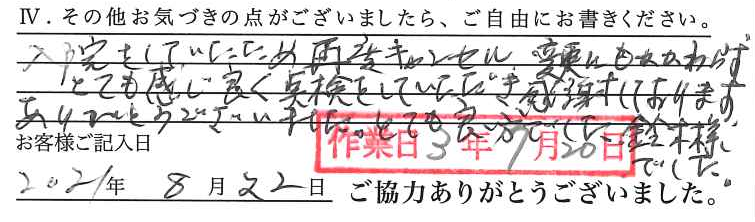 Ⅳ．その他お気づきの点がございましたら、ご自由にお書きください。
入院をしていたため再度キャンセル、変更にもかかわらず
とても感じ良く点検をしていただき感謝しております
ありがとうございました。とても良い方でした。鈴木様
でした。
お客様ご記入日
作業日 3年 9月20日
2021年 8月22日 ご協力ありがとうございました。